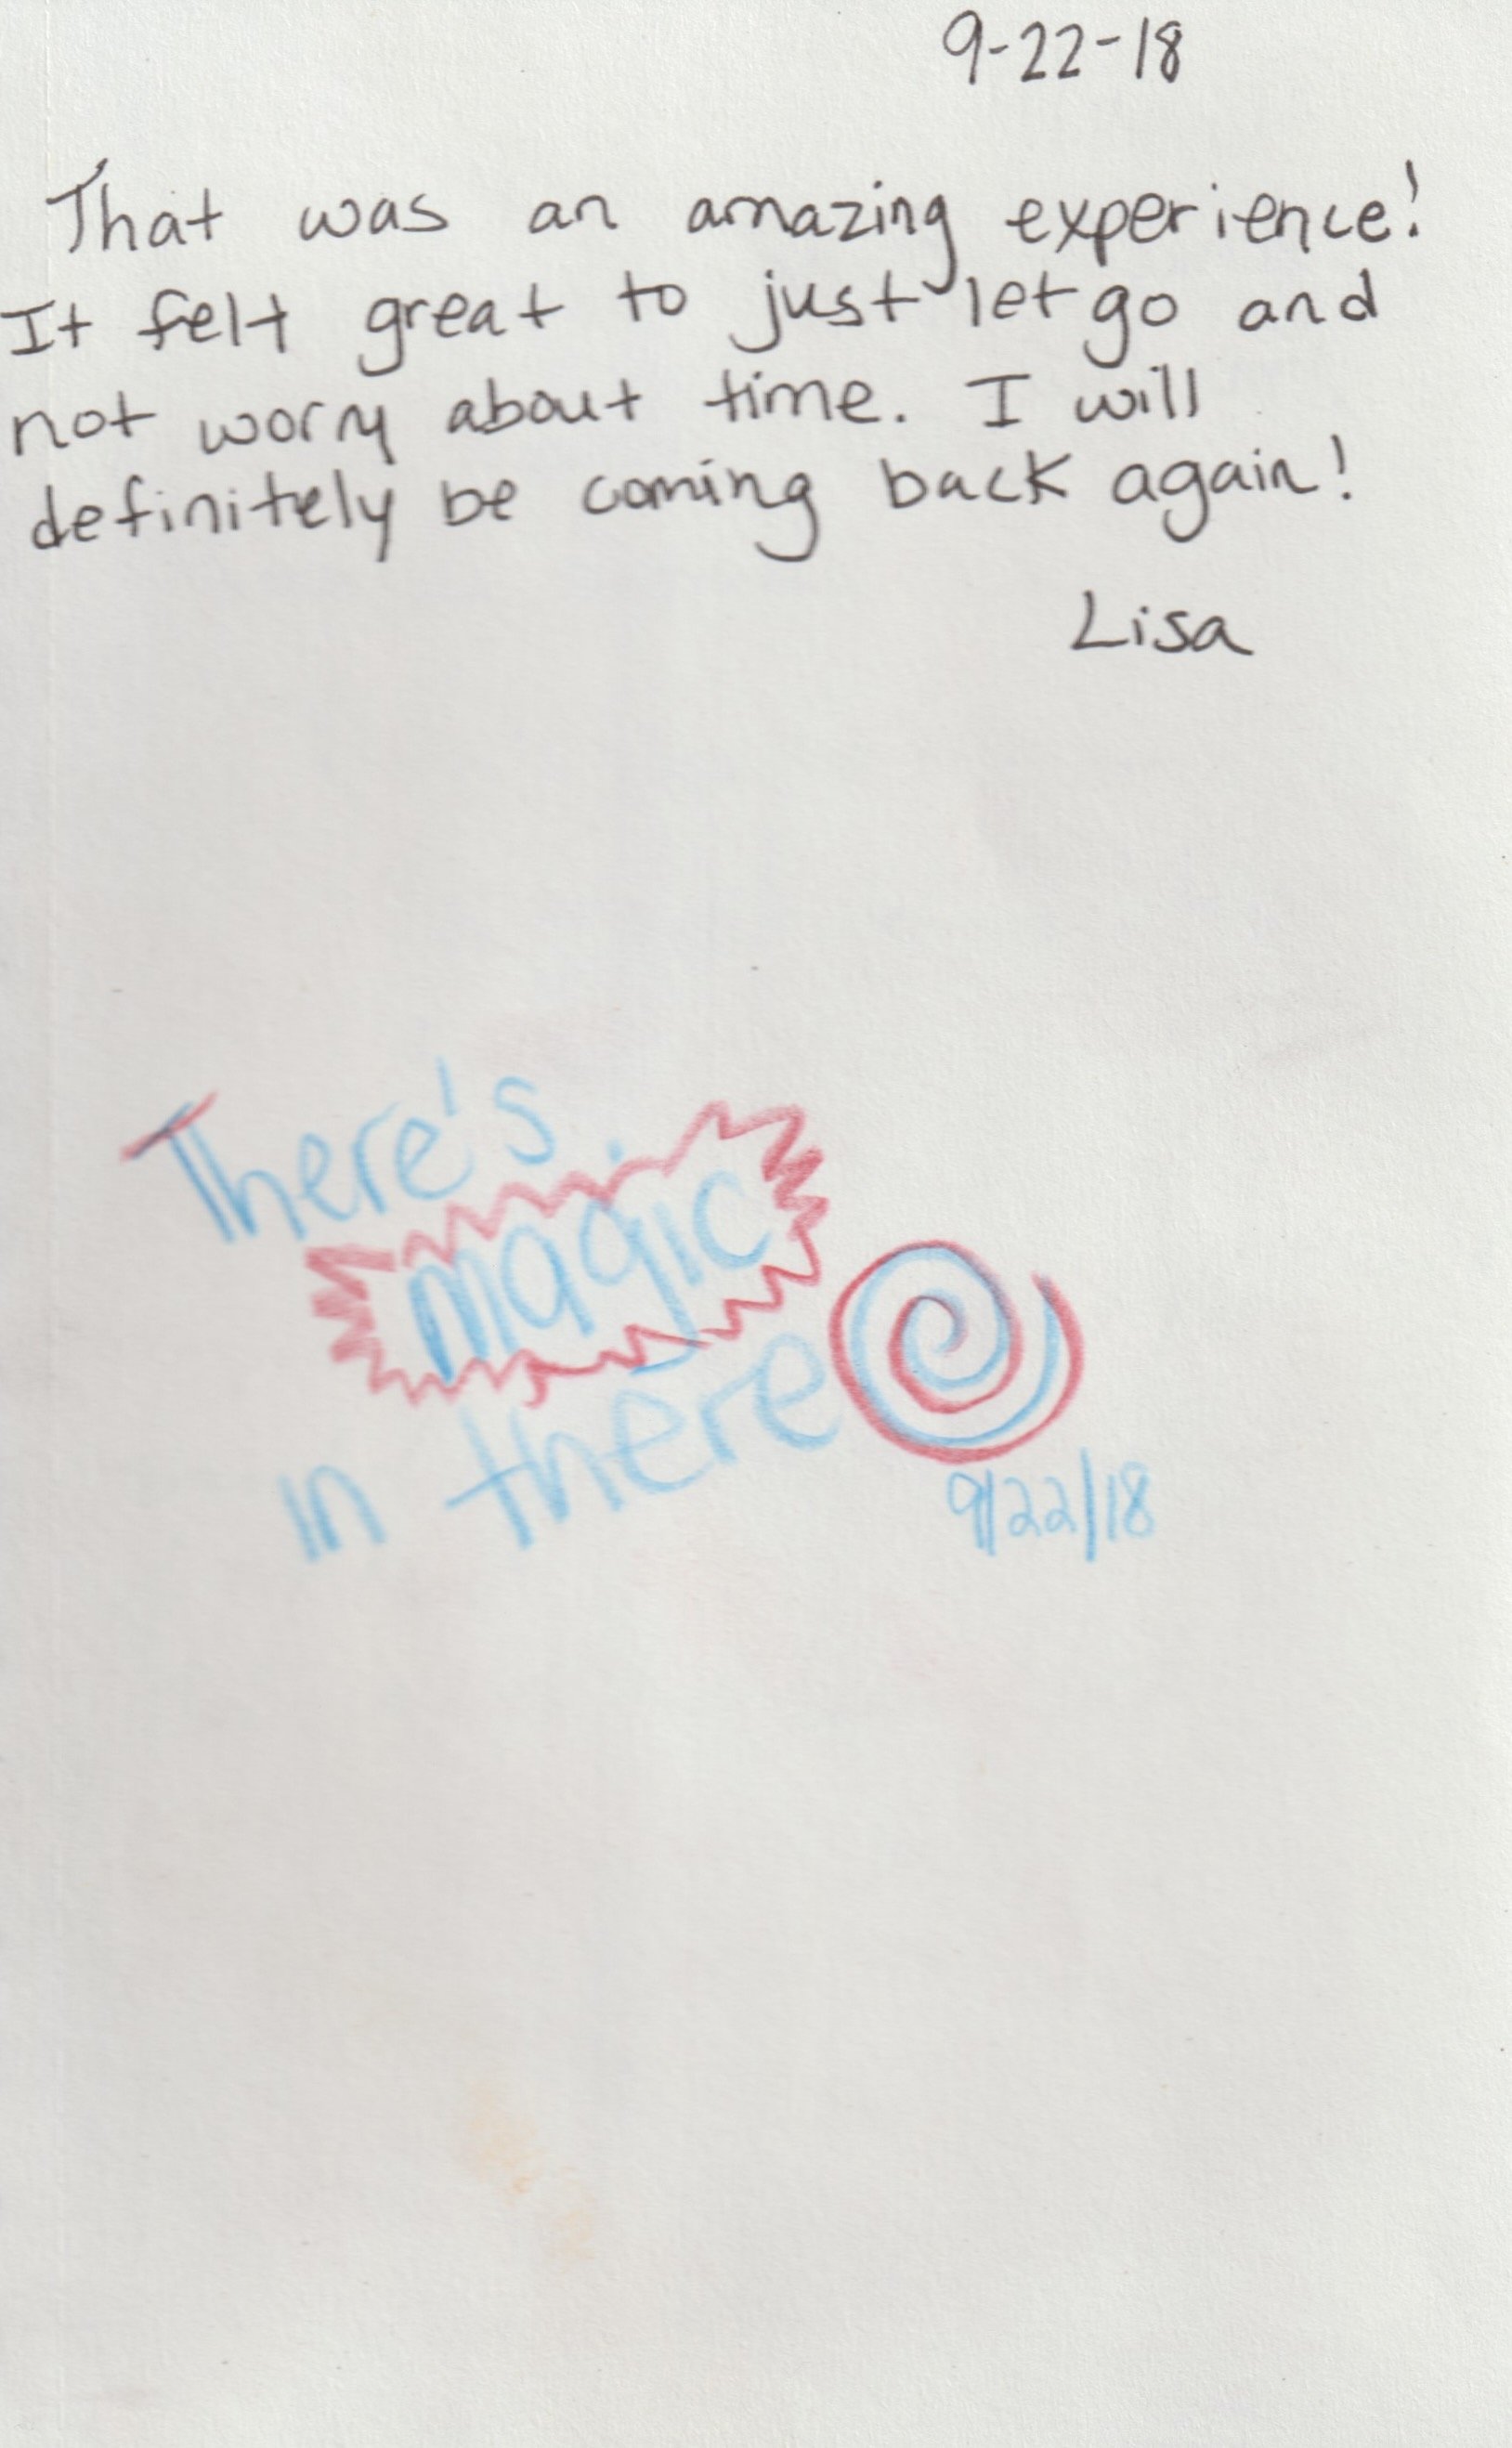 9-22-18
That was an amazing experience!
It felt great to just let go and
not worry about time. I will
definitely be coming back again!
Lisa
There's
magic
in there
9/22/18